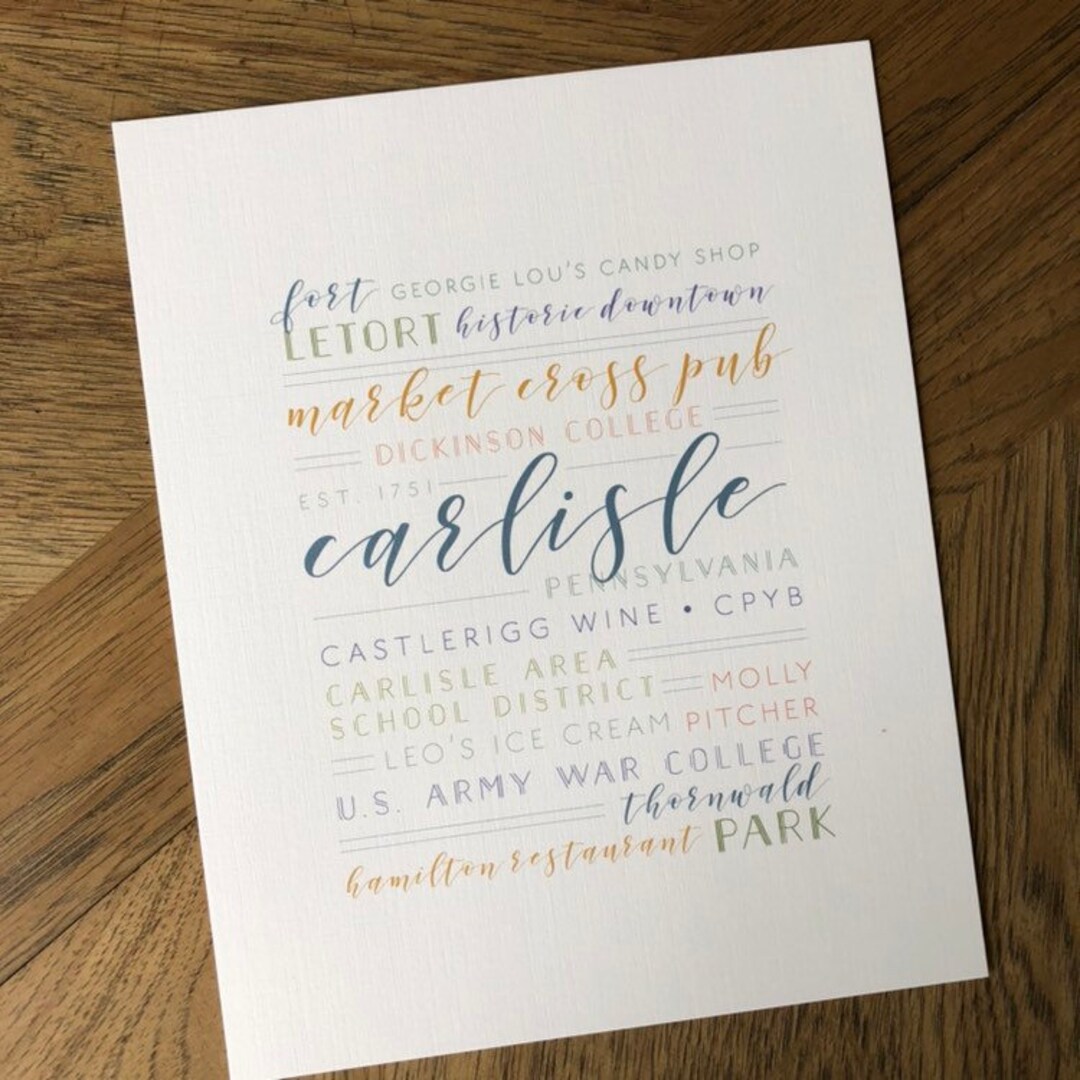 fort GEORGIE LOU'S CANDY SHOP
LETORT historic downtown
market cross pub
DICKINSON COLLEGE
EST. 1751
carlisle
PENNSYLVANIA
CASTLERIGG WINE • CPYB
CARLISLE AREA
SCHOOL DISTRICT MOLLY
LEO'S ICE CREAM PITCHER
U.S. ARMY WAR COLLEGE
thornwald
hamilton restaurant PARK